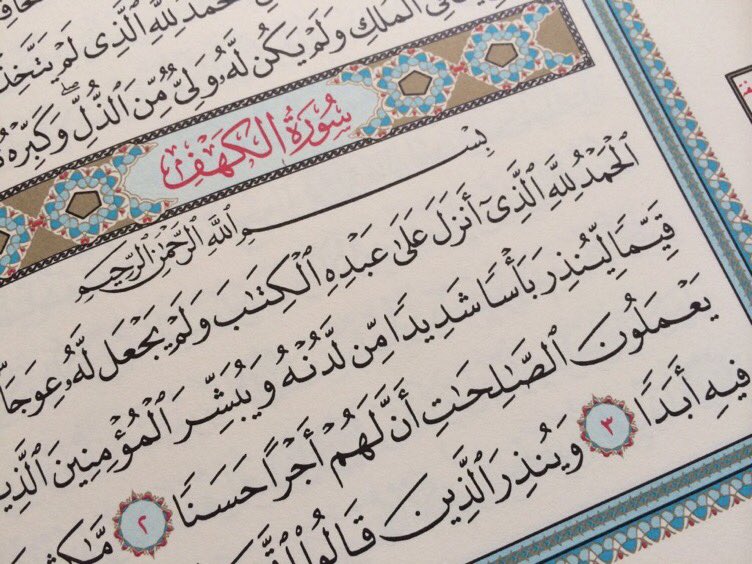 حَمْدُ لِلَّهِ ٱلَّذِى لَمْ يَتَّخِذْ
فِى ٱلْمُلْكِ وَلَمْ يَكُن لَّهُۥ وَلِىٌّ مِّنَ ٱلذُّلِّ ۖ وَكَبِّرْهُ
سُورَةُ الكَهْفِ
بِسْمِ ٱللَّهِ ٱلرَّحْمَٰنِ ٱلرَّحِيمِ
ٱلْحَمْدُ لِلَّهِ ٱلَّذِىٓ أَنزَلَ عَلَىٰ عَبْدِهِ ٱلْكِتَٰبَ وَلَمْ يَجْعَل لَّهُۥ عِوَجَا
قَيِّمًا لِّيُنذِرَ بَأْسًا شَدِيدًا مِّن لَّدُنْهُ وَيُبَشِّرَ ٱلْمُؤْمِنِينَ ٱلَّذِي
يَعْمَلُونَ ٱلصَّٰلِحَٰتِ أَنَّ لَهُمْ أَجْرًا حَسَنًا ٢ مَّٰكِثِ
فِيهِ أَبَدًا ٣ وَيُنذِرَ ٱلَّذِينَ قَالُوا۟